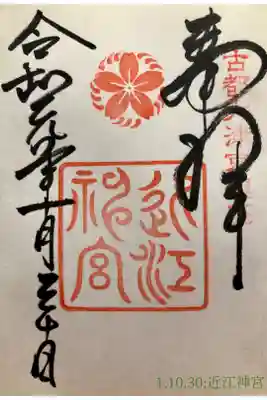 奉拝
古都大津宮
近江神宮
令和元年十月三十日
1.10.30:近江神宮